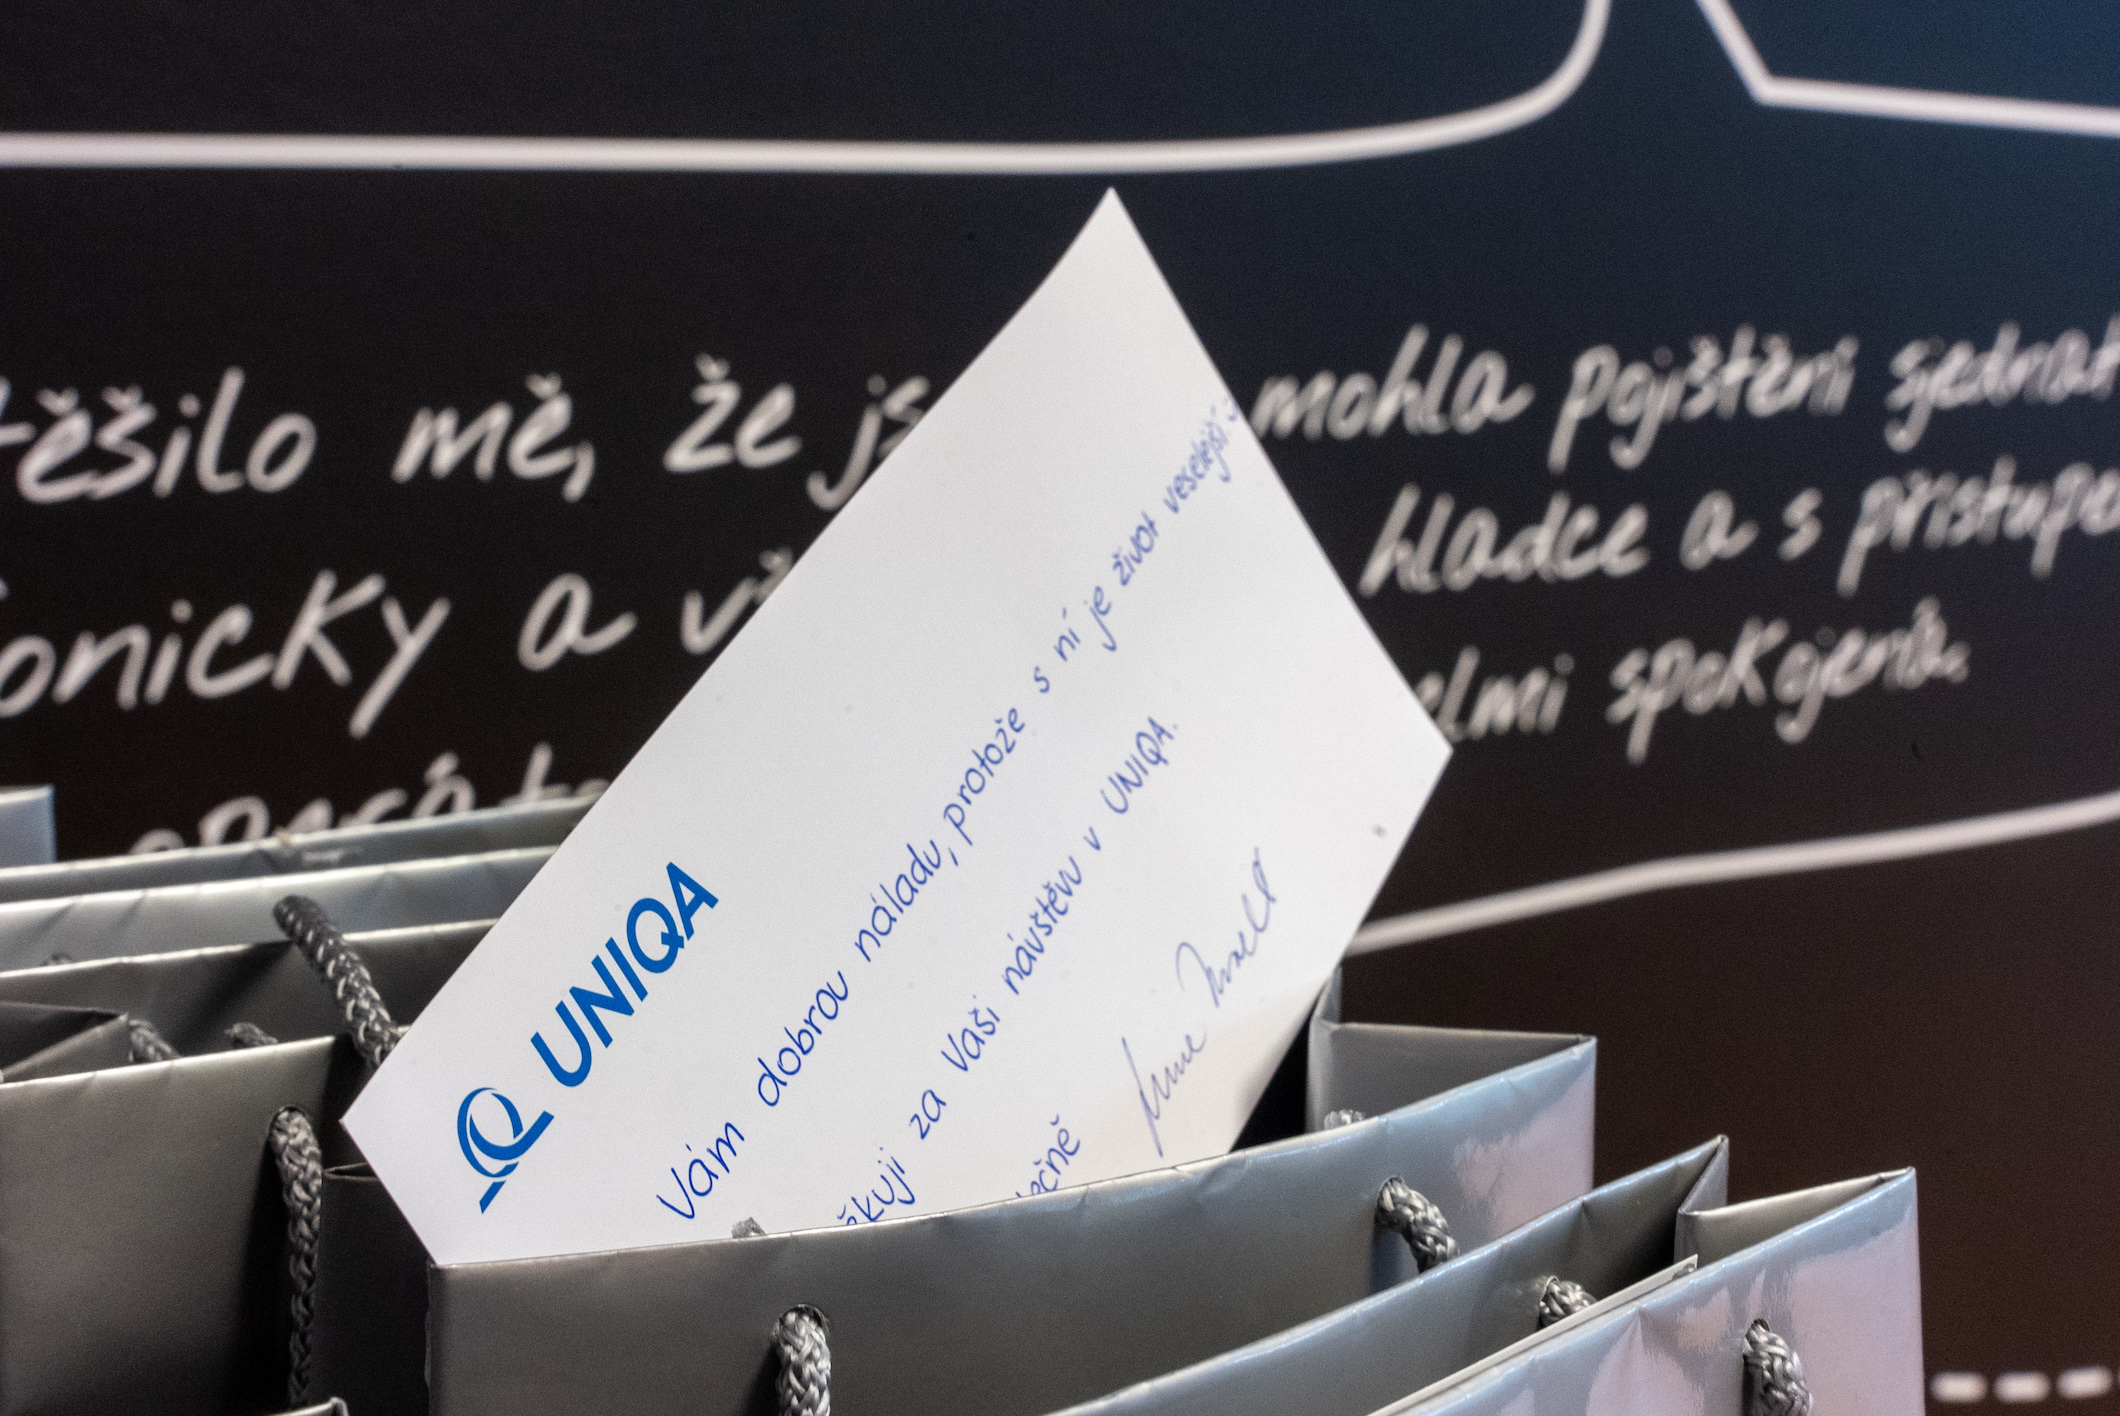 těšilo mě, že js
mohla pojištění sjednat
onicky a vš
hladce a s přístupe
elmi spokojená.
UNIQA
Vám dobrou náladu, protože s ní je život veselejší
ěkuji za Vaši návštěvu v UNIQA.
ečně